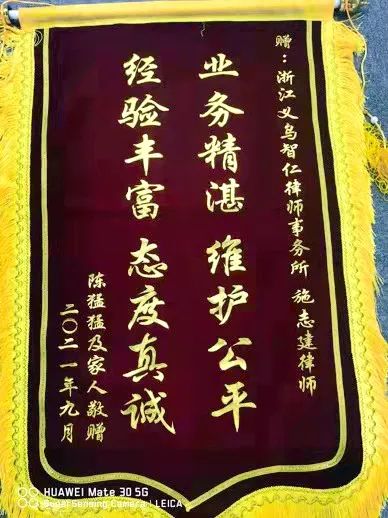 赠：浙江义乌智仁律师事务所 施志建律师
业务精湛 维护公平
经验丰富 态度真诚
陈猛猛及家人敬赠
二〇二一年九月
HUAWEI Mate 30 5G
SuperSensing Camera | LEICA